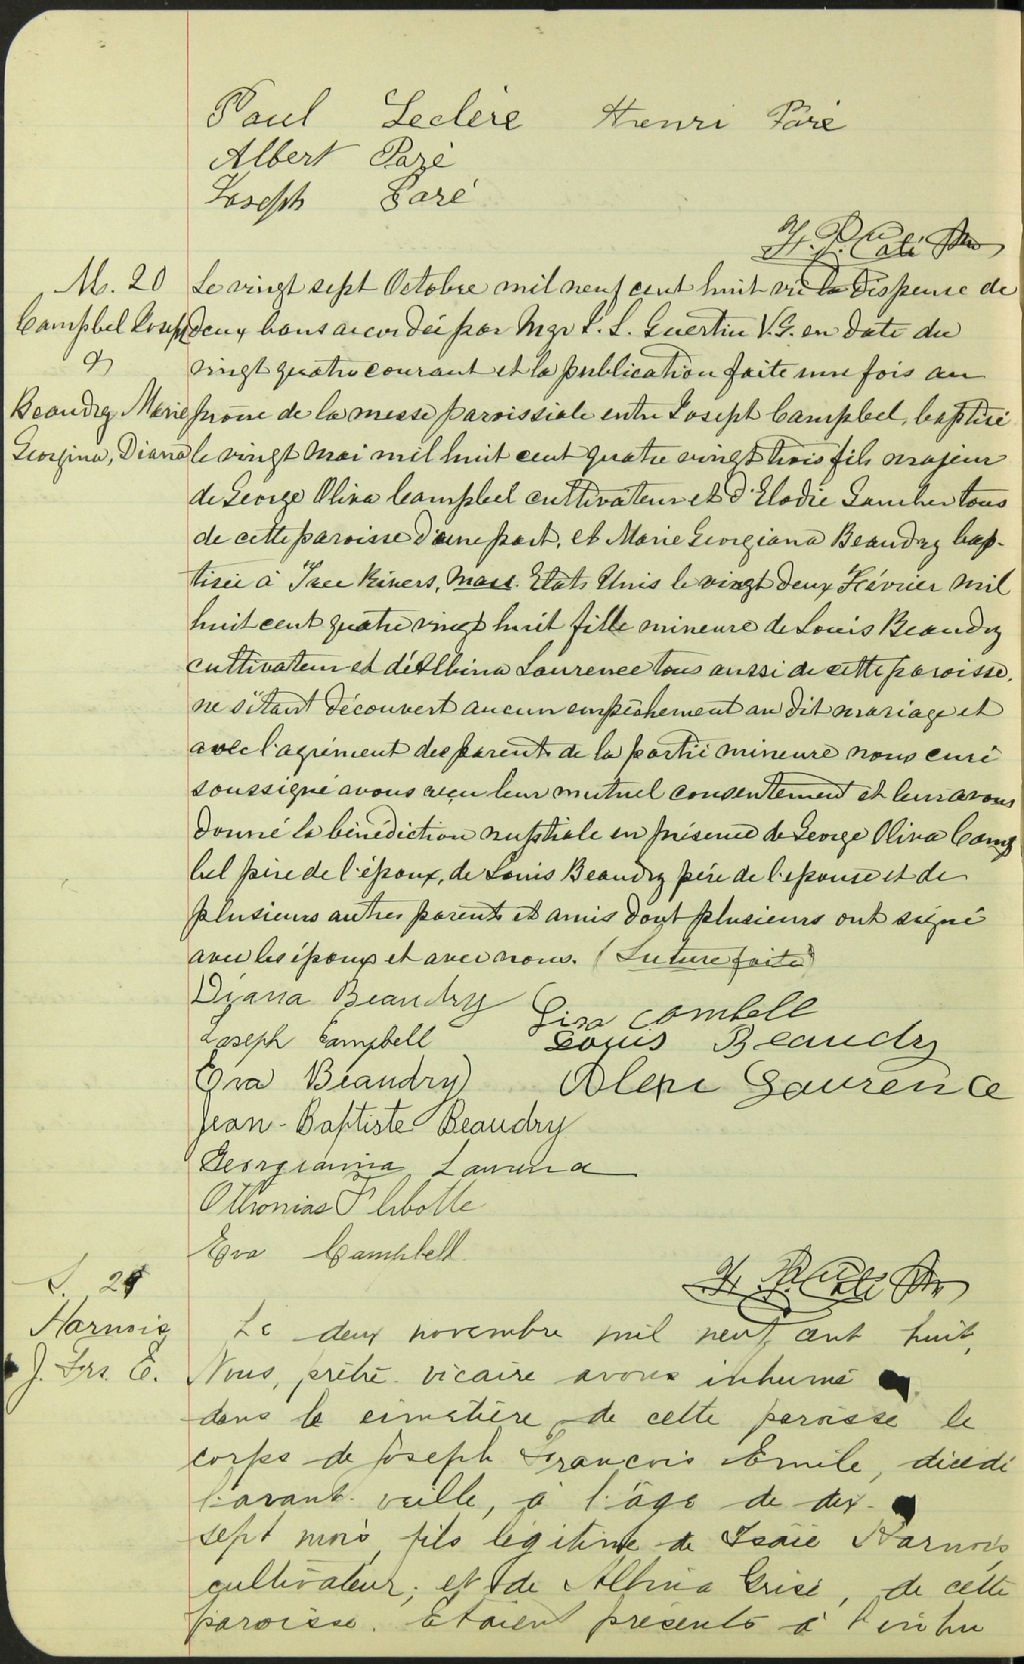 Paul Leclère Henri Paré
Albert Paré
Joseph Paré
M. 20
Campbel Joseph
&
Beaudry Marie
Georgina, Diana
Le vingt sept Octobre mil neuf cent huit vu la dispense de
deux bans accordée par Mgr L. S. Guertin V.G. en date du
vingt quatre courant et la publication faite une fois au
prône de la messe paroissiale entre Joseph Campbel, baptisé
le vingt Mai mil huit cent quatre vingt trois fils majeur
de George Oliva Campbel cultivateur et d'Elodie tous
de cette paroisse d'une part, et Marie Georgiana Beaudry bap-
tisée à Rivers, Mass. Etats Unis le vingt deux Février mil
huit cent quatre vingt huit fille mineure de Louis Beaudry
cultivateur et de Albina Laurence tous aussi de cette paroisse.
ne s'étant découvert aucun empêchement au dit mariage et
avec l'agrément des parents de la partie mineure nous curé
soussigné avons reçu leur mutuel consentement et leur avons
donné la bénédiction nuptiale en présence de George Oliva Camp
bel père de l'époux, de Louis Beaudry père de l'épouse et de
plusieurs autres parents et amis dont plusieurs ont signé
avec les époux et avec nous. (Lecture faite)
Diana Beaudry Combell
Joseph Campbell Louis Beaudry
Eva Beaudry Laurence
Jean-Baptiste Beaudry
Georgianna
Flibotte
Eva Campbell
S. 21
Harnois
J. Frs. E.
Le deux novembre mil neuf cent huit,
Nous, prêtre vicaire avons inhumé
dans le cimetière de cette paroisse le
corps de Joseph François Emile, décédé
l'avant-veille, à l'âge de dix-
sept mois, fils légitime de Isaïe Harnois,
cultivateur, et de Albina Grisé, de cette
paroisse. Etaient présents à l'inhu